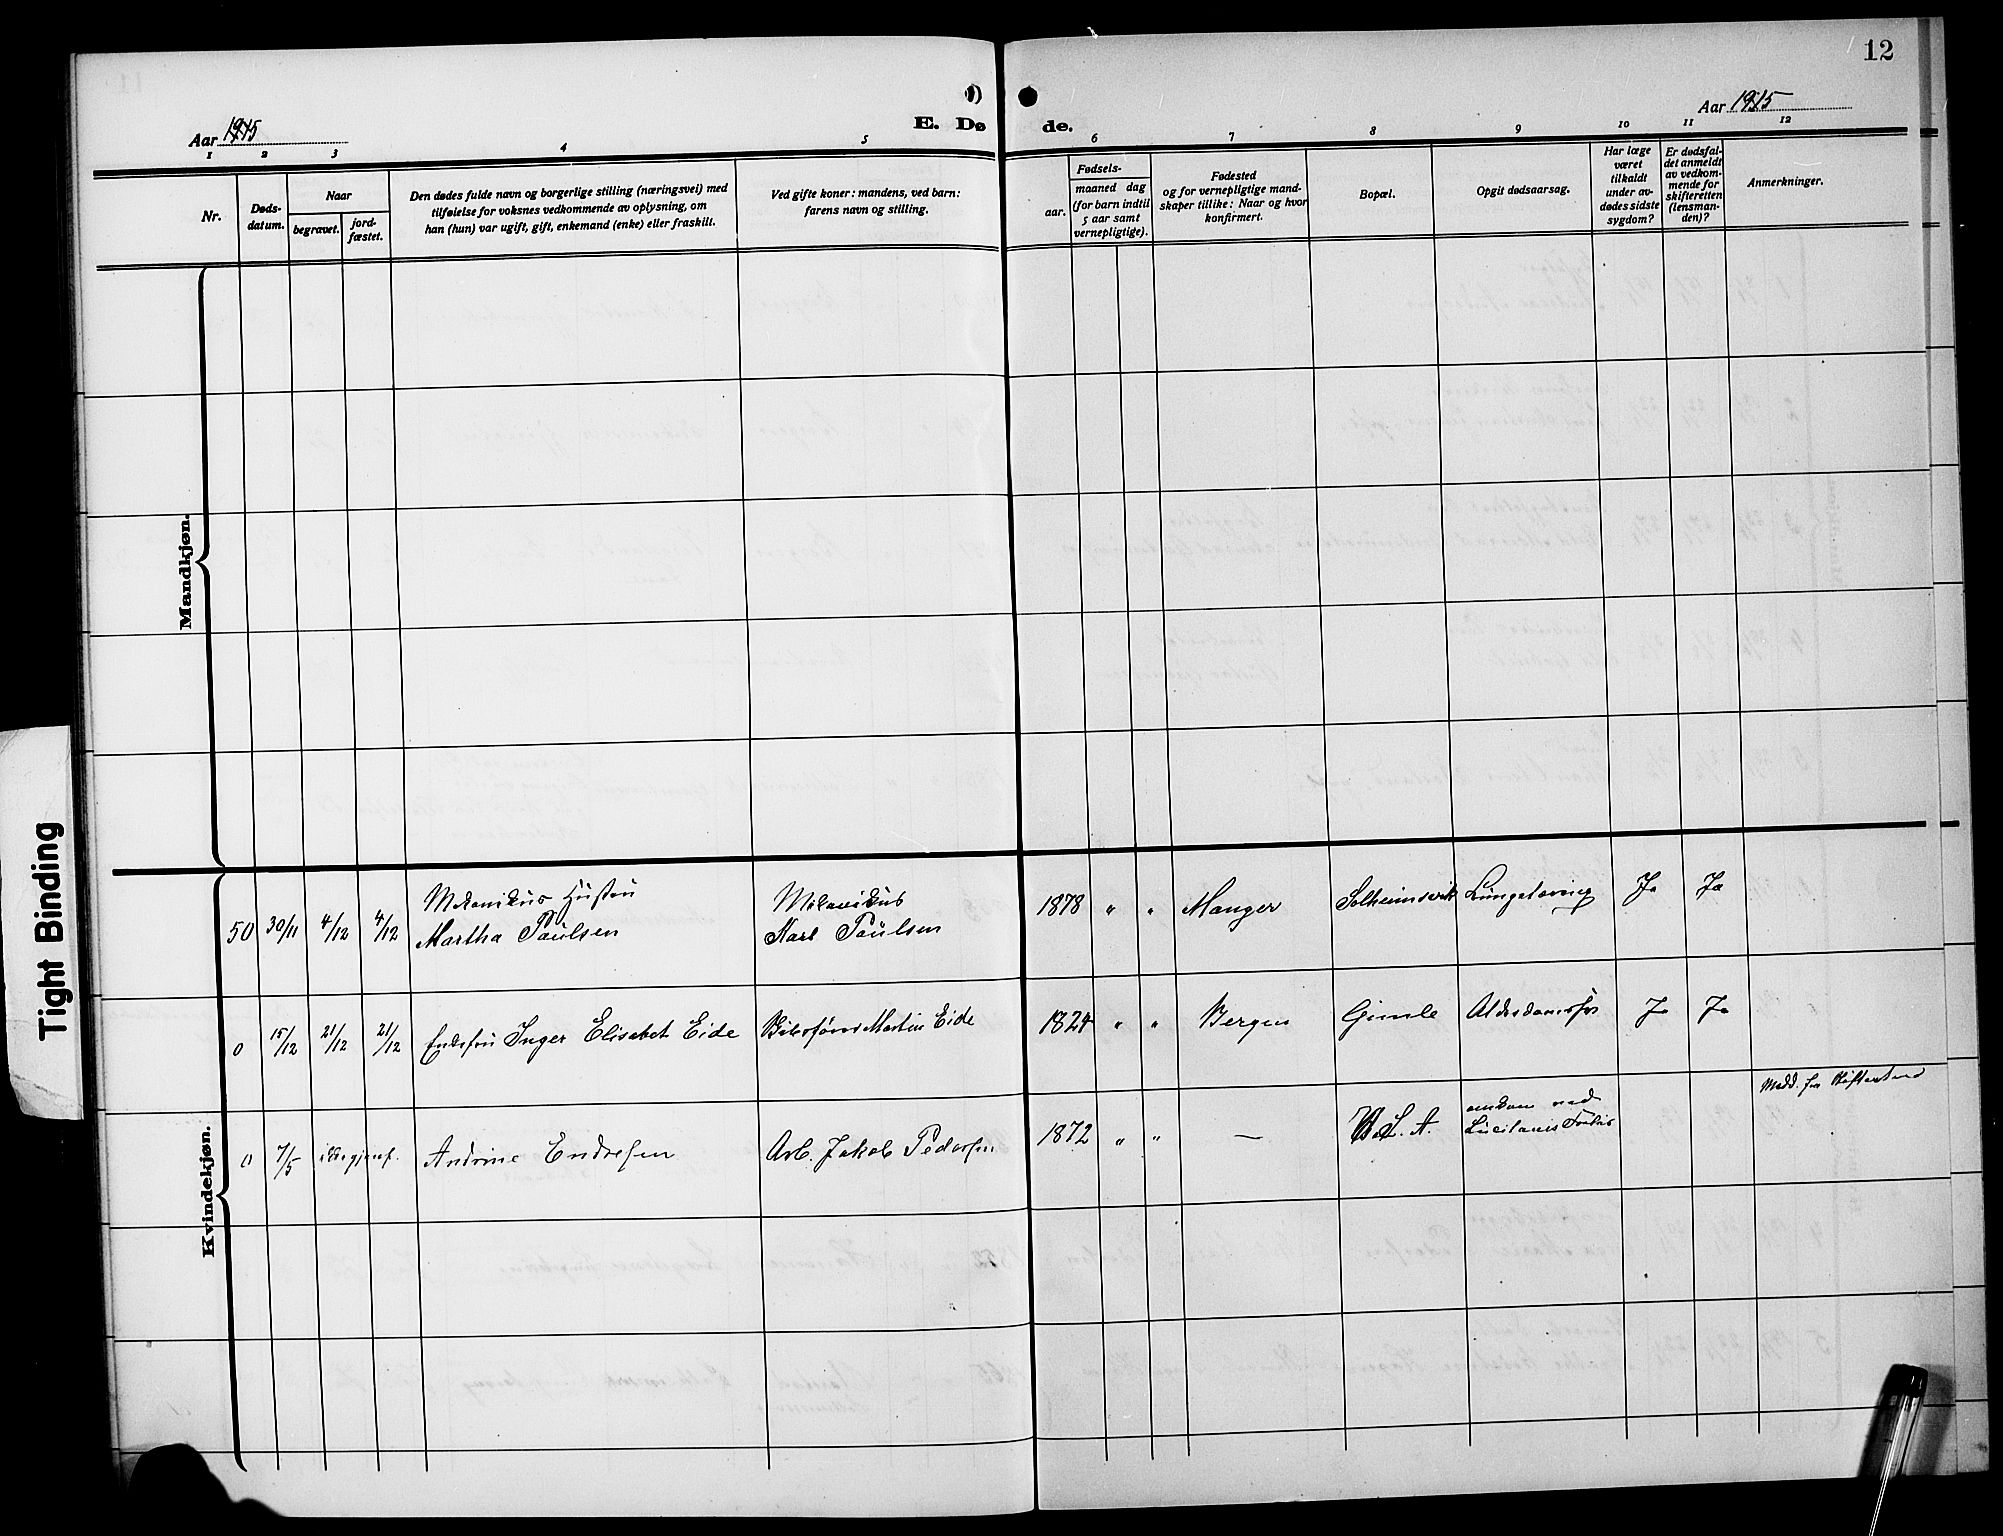 12
Aar 1915
E. Dø
de.
Aar 1915
1 2 3 4 5 6 7 8 9 10 11 12
Nr.
Døds-
datum.
Naar
begravet.
jord-
fæstet.
Den dødes fulde navn og borgerlige stilling (næringsvei) med
tilføielse for voksnes vedkommende av oplysning, om
han (hun) var ugift, gift, enkemand (enke) eller fraskilt.
Ved gifte koner: mandens, ved barn:
farens navn og stilling.
Fødsels-
aar.
maaned dag
(for barn indtil
5 aar samt
vernepligtige).
Fødested
og for vernepligtige mand-
skaper tillike: Naar og hvor
konfirmert.
Bopæl.
Opgit dødsaarsag.
Har læge
været
tilkaldt
under av-
dødes sidste
sygdom?
Er dødsfal-
det anmeldt
av vedkom-
mende for
skifteretten
(lensman-
den)?
Anmerkninger.
Mandkjøn.
Kvindekjøn.
Mekanikus Hustru
50 30/11 4/12 4/12 Martha Paulsen
Mekanikus
Karl Paulsen
1878 " " Manger Solheimsvik Lungetæring Ja Ja
0 15/12 21/12 21/12 Enkefru Inger Elisabet Eide
Martin Eide
1824 " " Bergen Gimle Ja Ja
0 7/5 Andrine Endresen
Arb. Jakob Pedersen
1872 " " — U. S. A.
omkom ved
Lucitanias Forlis
Medd. fra Skifteretten
Tight Binding